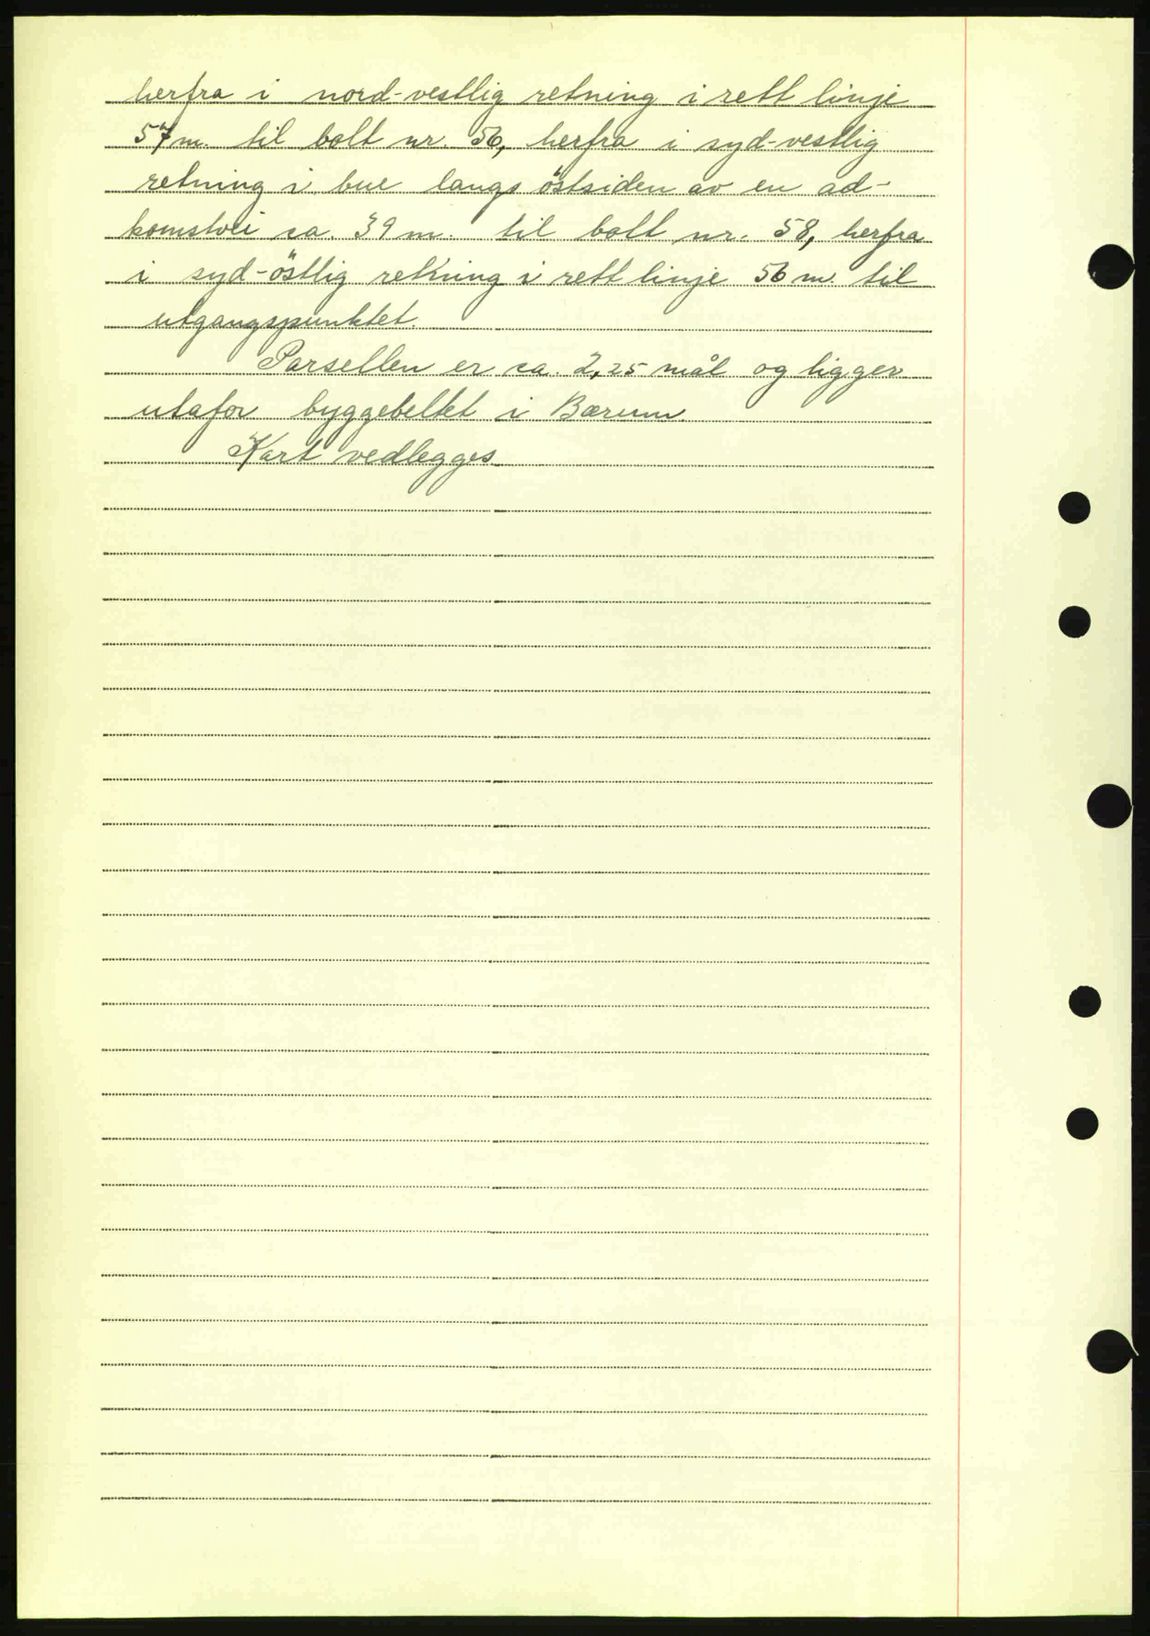 herfra i nord-vestlig retning i rett linje
57 m. til bolt nr. 56, herfra i syd-vestlig
retning i bue langs östsiden av en ad-
komstvei ca. 39 m. til bolt nr. 58, herfra
i syd-östlig retning i rett linje 56 m. til
utgangspunktet.
Parsellen er ca. 2,25 mål og ligger
utafor byggebeltet i Bærum.
Kart vedlegges.